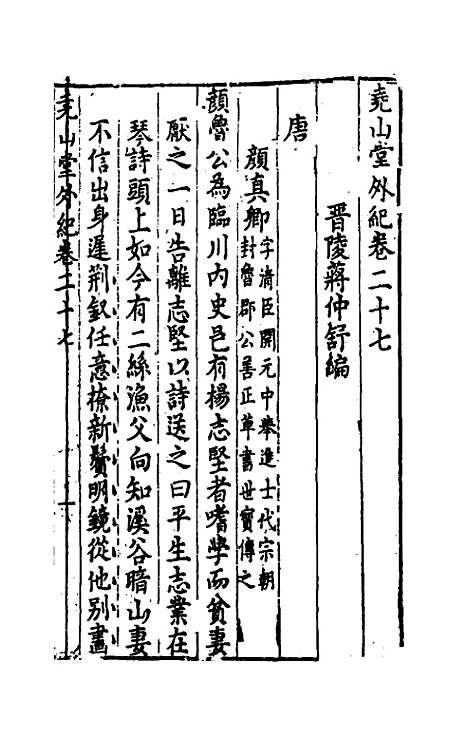 堯山堂外紀卷二十七
晋陵蔣仲舒編
唐
顏真卿字清臣開元中舉進士代宗朝
封魯郡公善正草書世寶傳之
顏魯公為臨川內史邑有楊志堅者嗜學而貧妻
厭之一日告離志堅以詩送之曰平生志業在
琴詩頭上如今有二絲漁父向知溪谷暗山妻
不信出身遲荆釵任意撩新鬢明鏡從他别畫
堯山堂外紀卷二十七
一